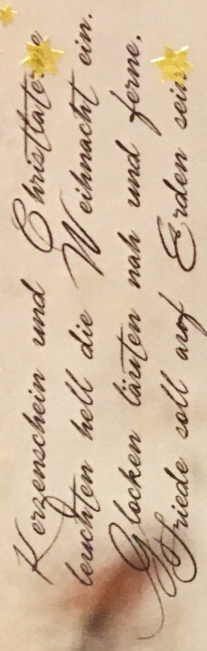 Kerzenschein und Christlaterne
leuchten hell die Weihnacht ein.
Glocken läuten nah und ferne,
Friede soll auf Erden sein